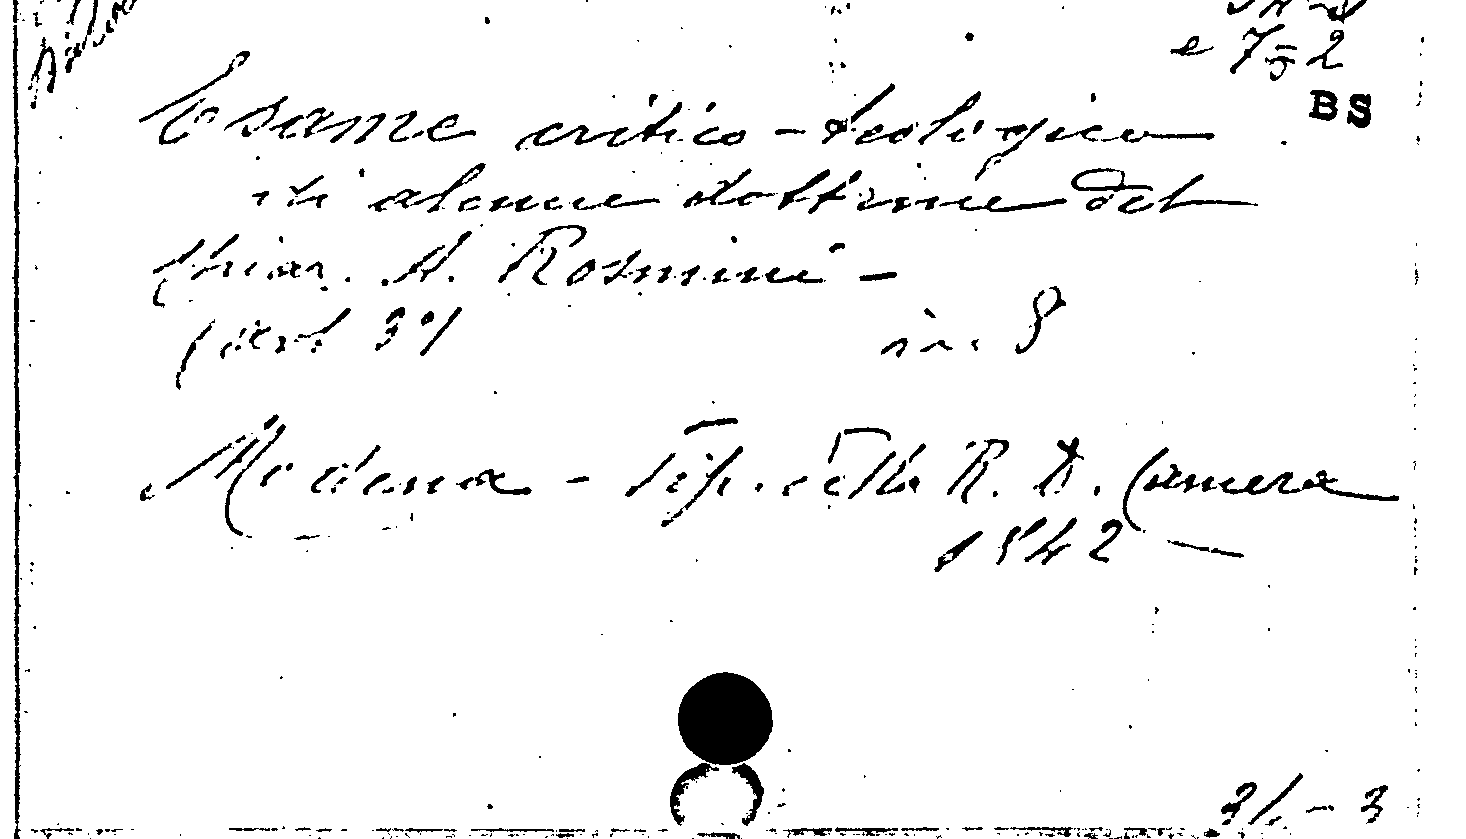 e 7-5-2
BS
Esame critico-teologico
di alcune dottrine del
Chiar. A. Rosmini -
(part 3ª) in 8
Modena - Tip. della R. D. Camera
1842 -
31 - 3